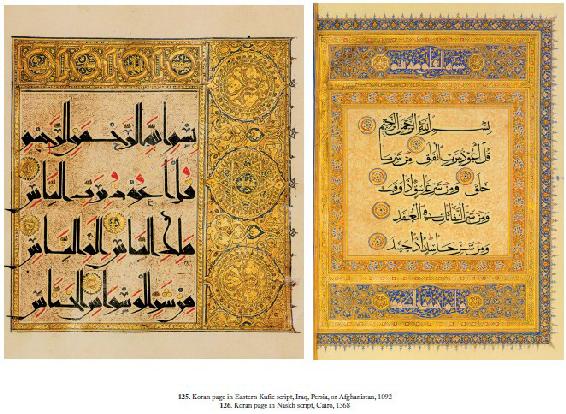 بسم الله الرحمن الرحيم
قل أعوذ برب الناس
ملك الناس إله الناس
من شر الوسواس الخناس
بسم الله الرحمن الرحيم
قل أعوذ برب الفلق من شر ما
خلق ومن شر غاسق إذا وقب
ومن شر النفاثات في العقد
ومن شر حاسد إذا حسد
125. Koran page in Eastern Kufic script, Iraq, Persia, or Afghanistan, 1092
126. Koran page in script, Cairo, 1368